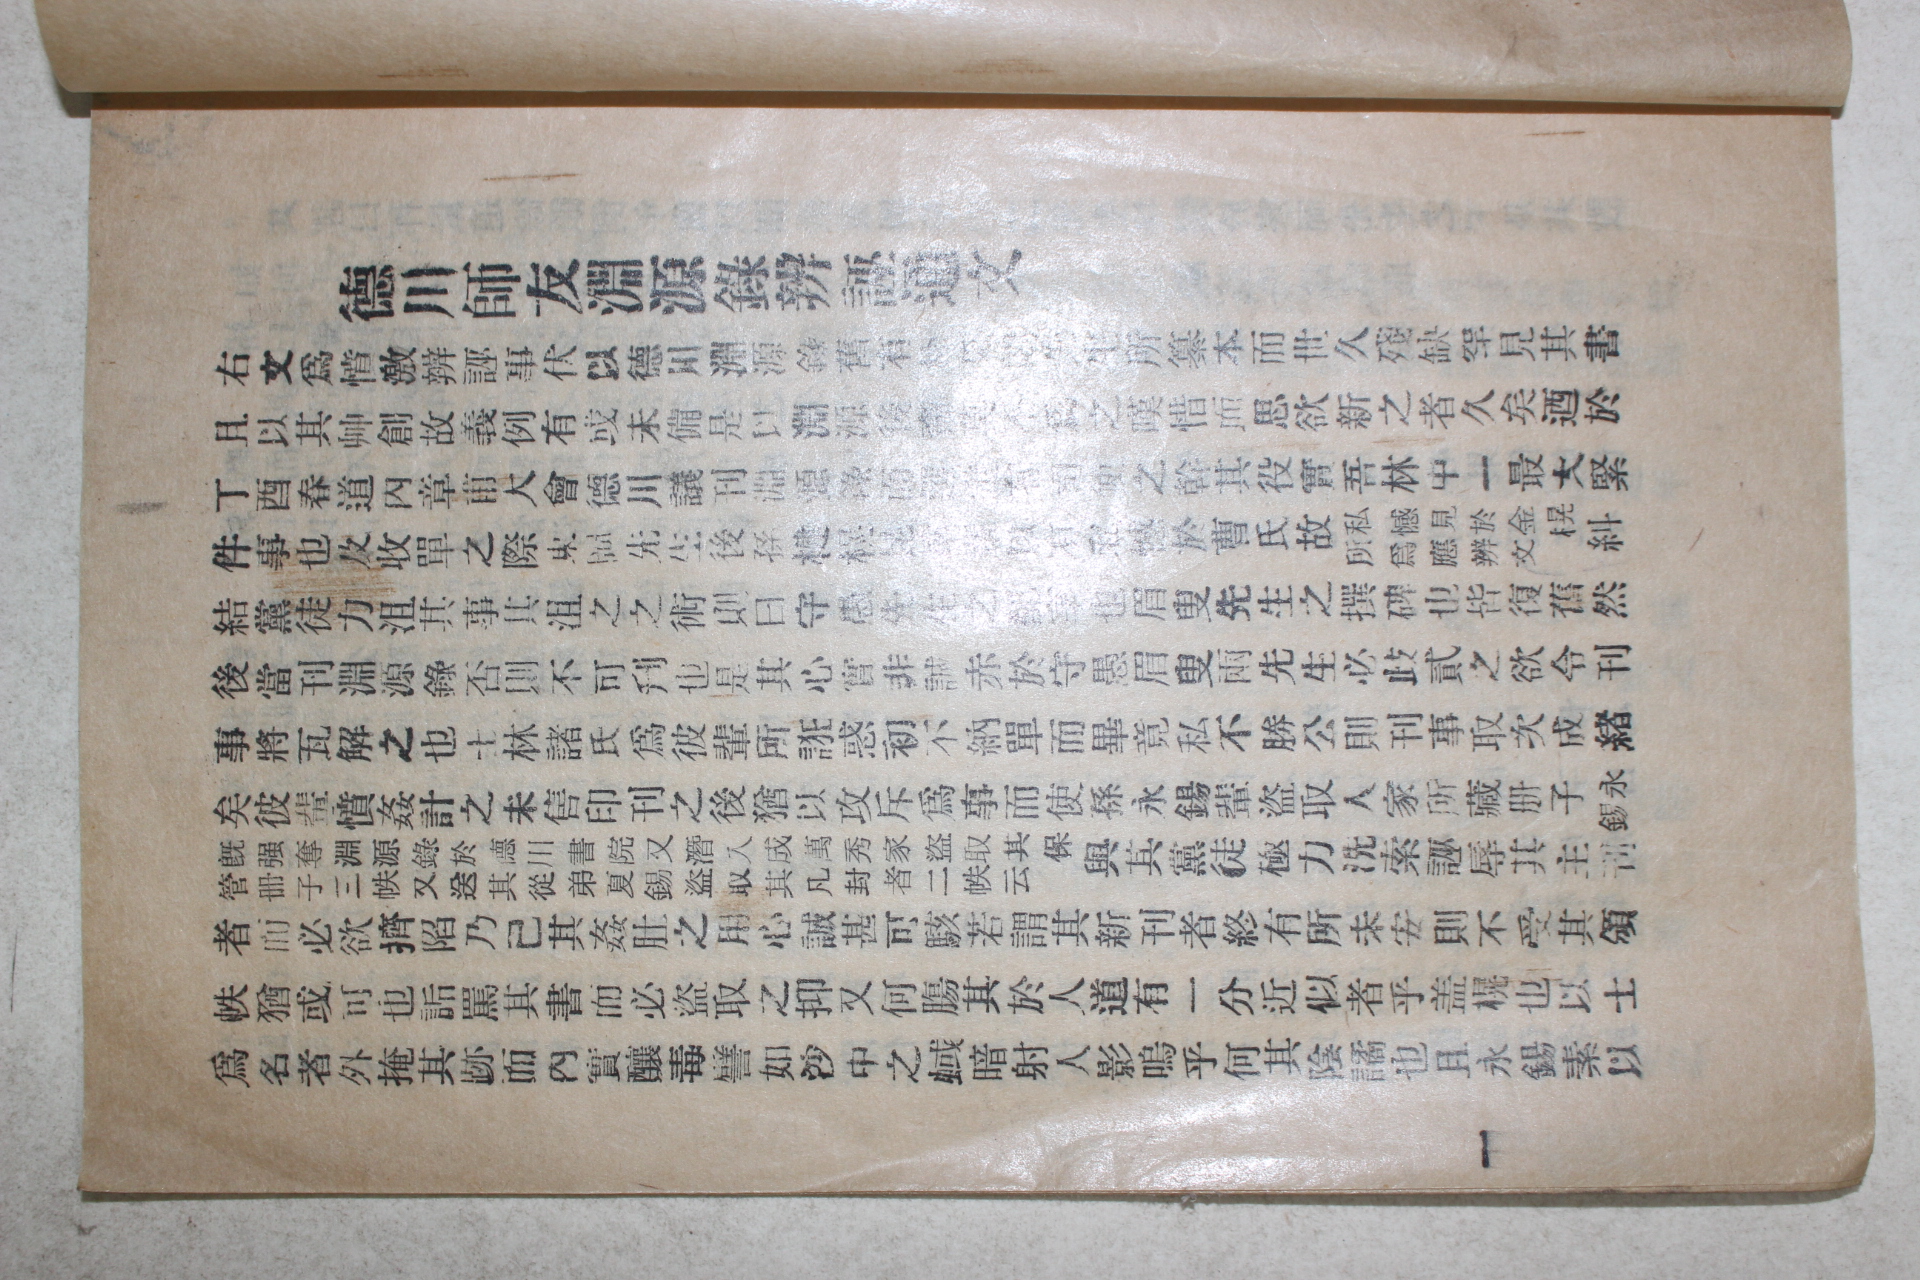 德川師友淵源錄辨誣通文
右文爲憤激辨誣事伏以德川淵源錄舊有 所纂本而世久殘缺罕見其書
且以其艸創故義例有或未備是以淵源後 之嘆惜而思欲新之者久矣迺於
丁酉春道內章甫大會德川議刊淵源錄而 之幹其役實吾林中一最大緊
件事也及收單之際東岡先生後孫 憾於曹氏故私憾見於金榥所爲應辨文糾
結黨徒力沮其事其沮之之術則曰守愚先生之 也眉叟先生之撰碑也皆復舊然
後當刊淵源錄否則不可刋也是其心實非誠赤於守愚眉叟兩先生必歧貳之欲令刊
事將瓦解之也士林諸氏爲彼輩所誑惑初不納單而畢竟私不勝公則刊事取次成緖
矣彼輩憤姦計之未售印刊之後猶以攻斥爲事而使孫永錫輩盜取人家所藏册子永錫
旣强奪淵源錄於德川書院又潛入成萬秀家盜取其保
管册子三帙又送其從弟夏錫盜取其凡封者二帙云
與其黨徒極力洗索誣辱其主刊
者而必欲擠陷乃已其姦肚之用心誠甚可駭若謂其新刊者終有所未安則不受其頒
帙猶或可也詬罵其書而必盜取之抑又何膓其於人道有一分近似者乎盖榥也以士
爲名者外掩其跡而內實釀毒譬如沙中之蜮暗射人影嗚乎何其陰譎也且永錫素以
一